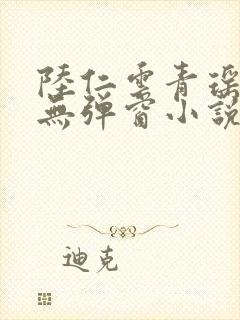 陸仁雲青瑤
無彈窗小說
迪克